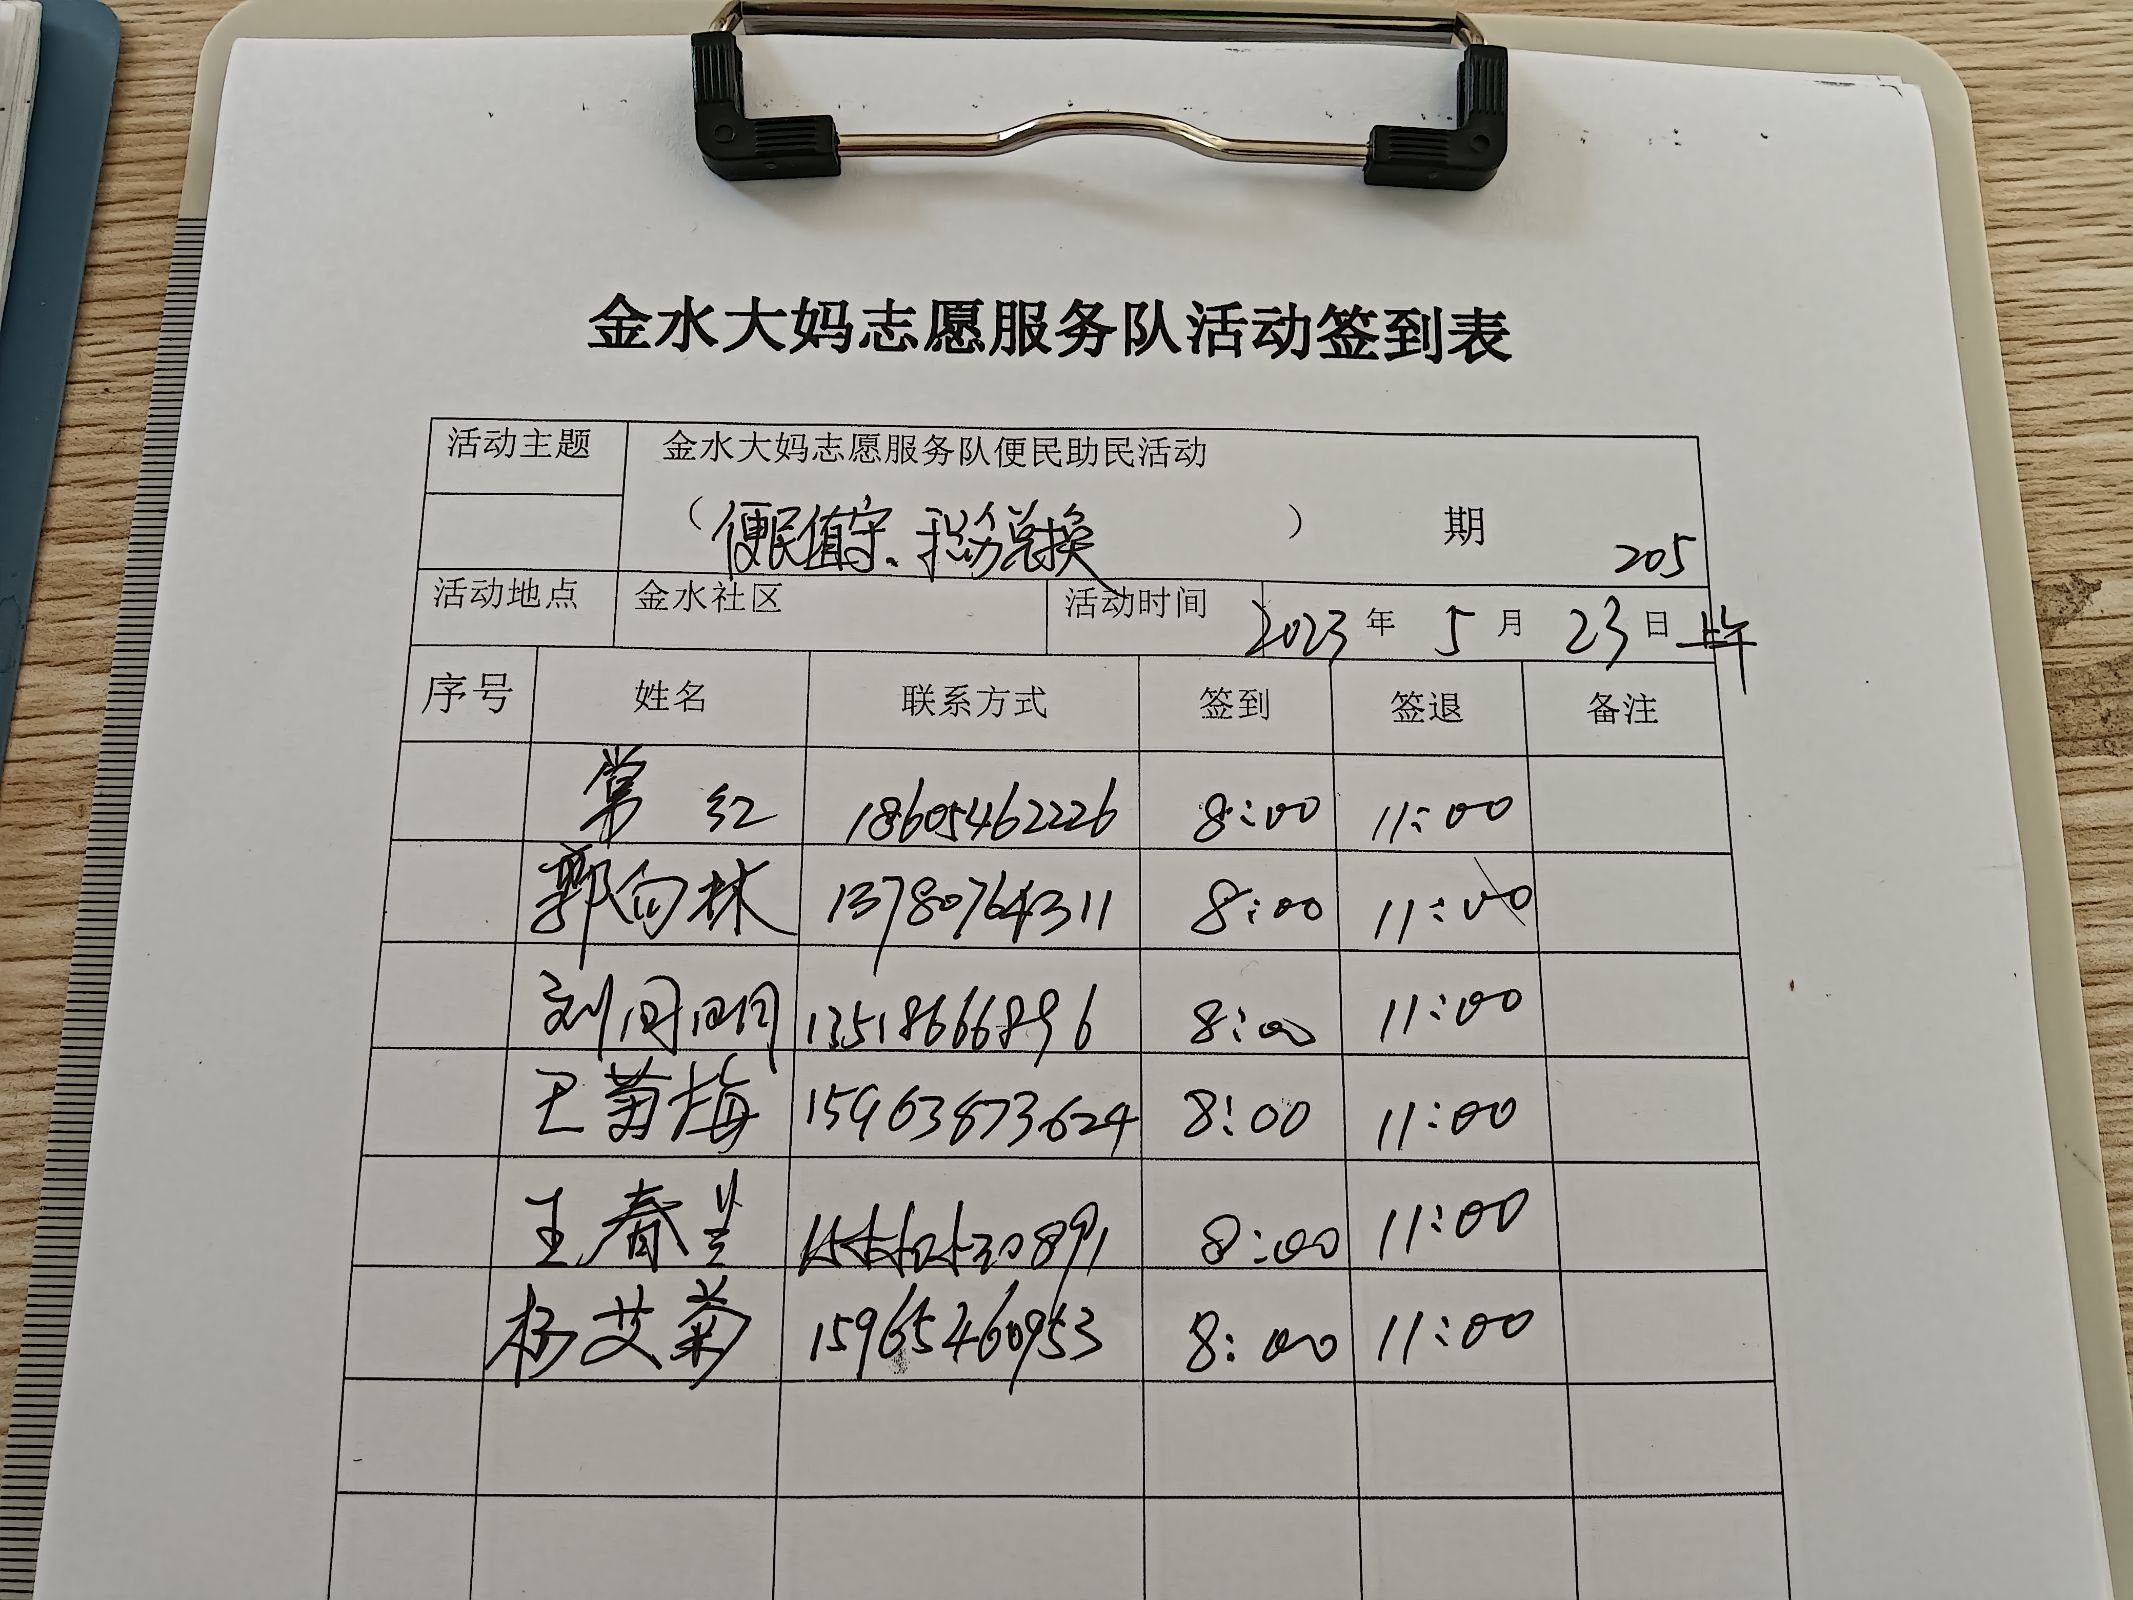 金水大妈志愿服务队活动签到表
活动主题 金水大妈志愿服务队便民助民活动
（便民值守、积分兑换） 期 205
活动地点 金水社区 活动时间 2023年 5月 23日 上午
序号 姓名 联系方式 签到 签退 备注
常红 18605462226 8:00 11:00
郭向林 13780764311 8:00 11:00
刘 13518666896 8:00 11:00
王菊梅 15963873624 8:00 11:00
王春兰 8:00 11:00
杨艾菊 15965460953 8:00 11:00